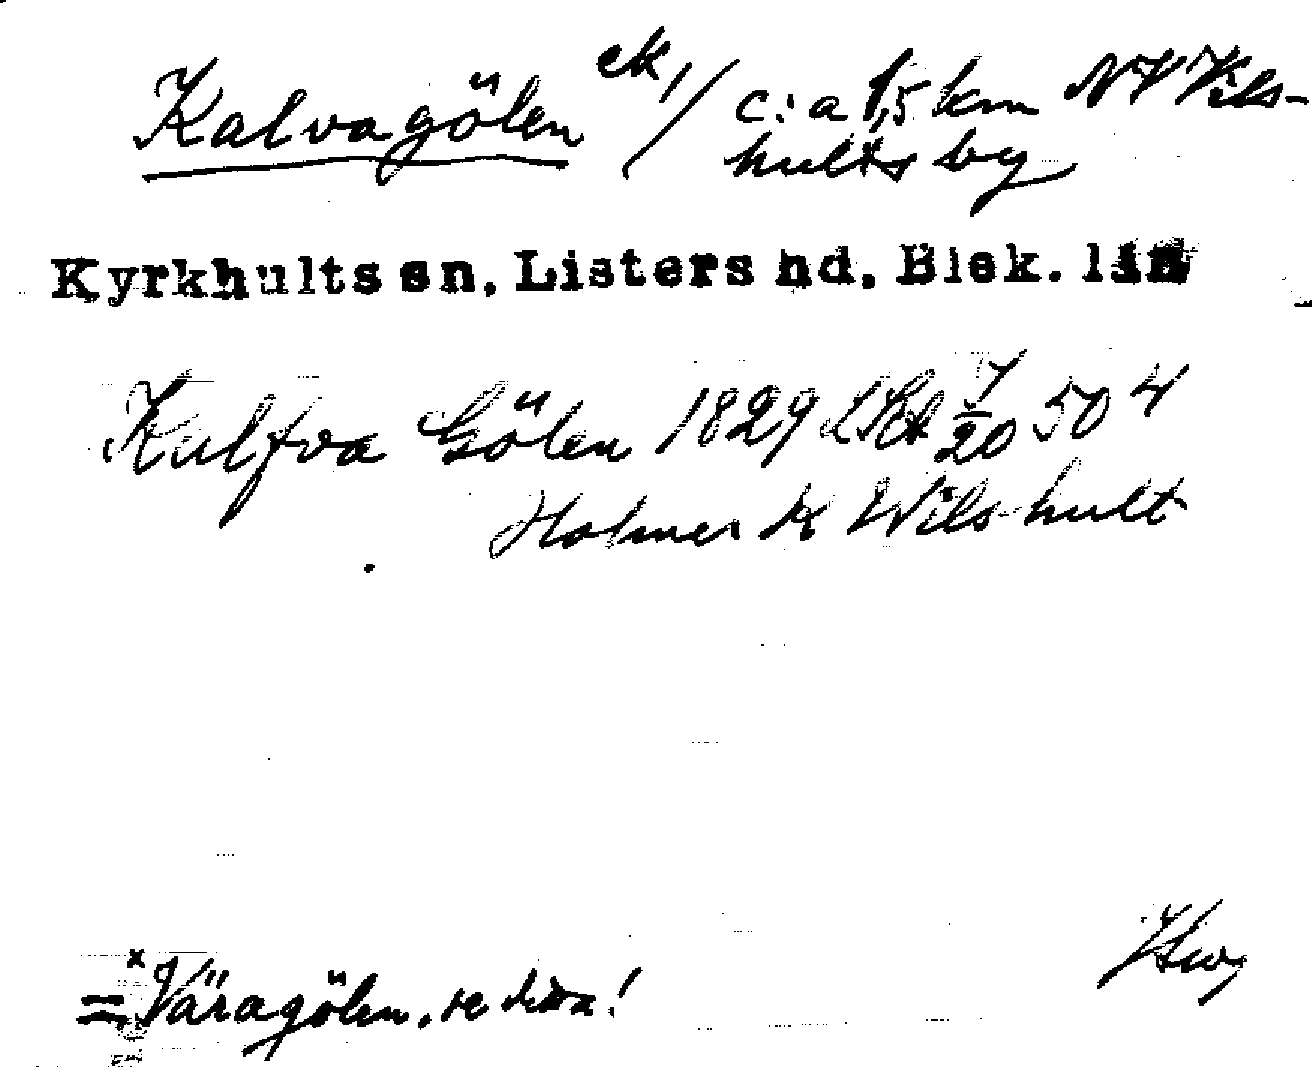 Kalvagölen ek / c:a 1,5 km NV Vils-
hults by
Kyrkhults sn. Listers hd. Blek. län
Kalfva Gölen 1829 LSt 7/20 50 4
Holmer k Wilshult
= Väragölen, se detta!